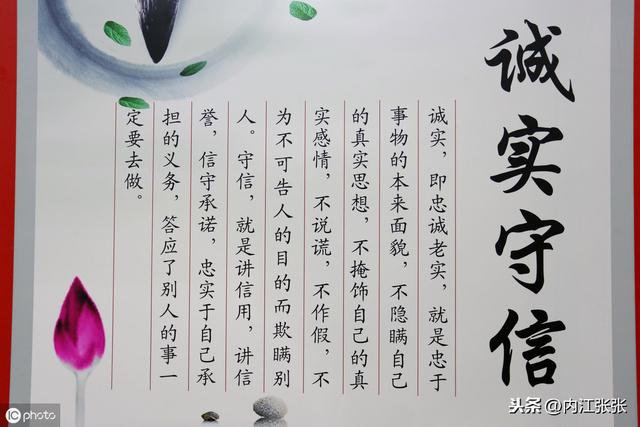 诚实守信
诚实，即忠诚老实，就是忠于
事物的本来面貌，不隐瞒自己
的真实思想，不掩饰自己的真
实感情，不说谎，不作假，不
为不可告人的目的而欺瞒别
人。守信，就是讲信用，讲信
誉，信守承诺，忠实于自己承
担的义务，答应了别人的事一
定要去做。
iC photo
头条@内江张张